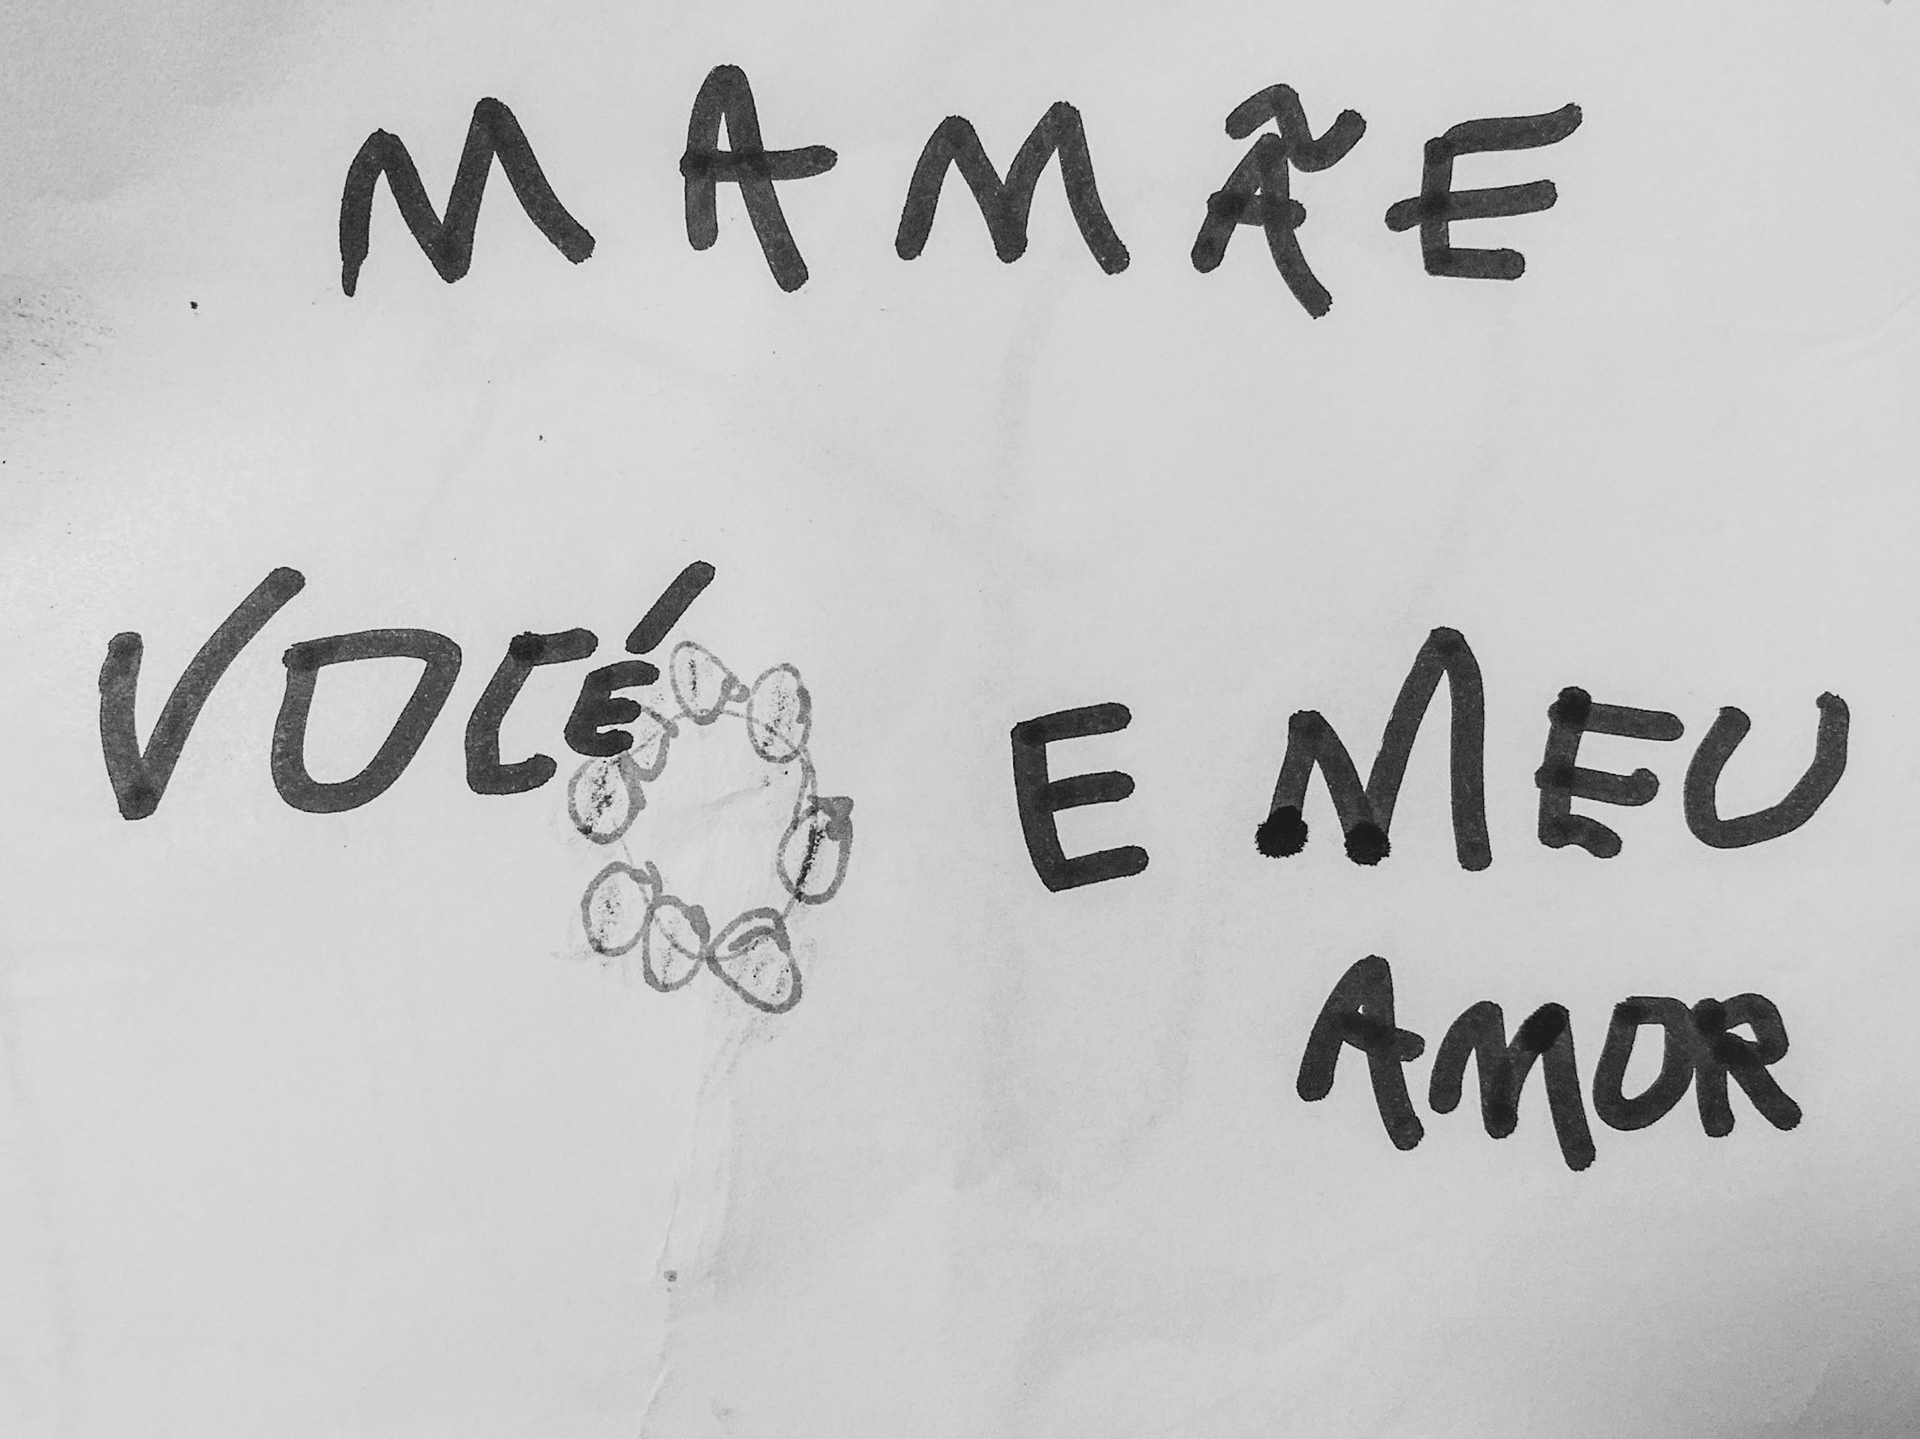 MAMÃE
VOCÉ E MEU
AMOR